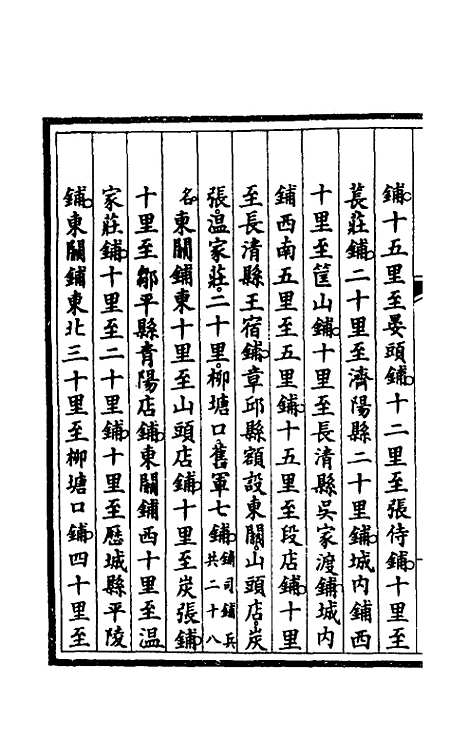 鋪十五里至晏頭鋪十二里至張侍鋪十里至
萇莊鋪二十里至濟陽縣二十里鋪城内鋪西
十里至筐山鋪十里至長清縣吳家渡鋪城内
鋪西南五里至五里鋪十五里至段店鋪十里
至長清縣王宿鋪章邱縣額設東關山頭店炭
張溫家莊二十里柳塘口舊軍七鋪鋪司鋪兵共二十八
名東關鋪東十里至山頭店鋪十里至炭張鋪
十里至鄒平縣青陽店鋪東關鋪西十里至温
家莊鋪十里至二十里鋪十里至歷城縣平陵
鋪東關鋪東北三十里至柳塘口鋪四十里至